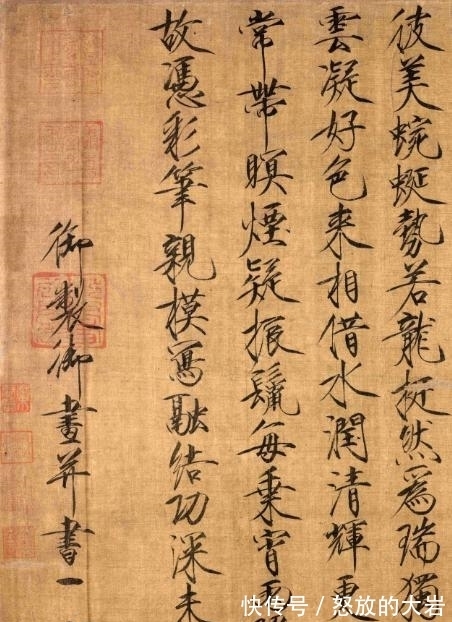 彼美蜿蜒勢若龍挺然爲瑞獨
雲凝好色來相借水潤清輝更
常帶瞑煙疑振鬣每乘宵
故憑彩筆親模寫融結功深未
御製御畫并書一
快传号 / 怒放的大岩